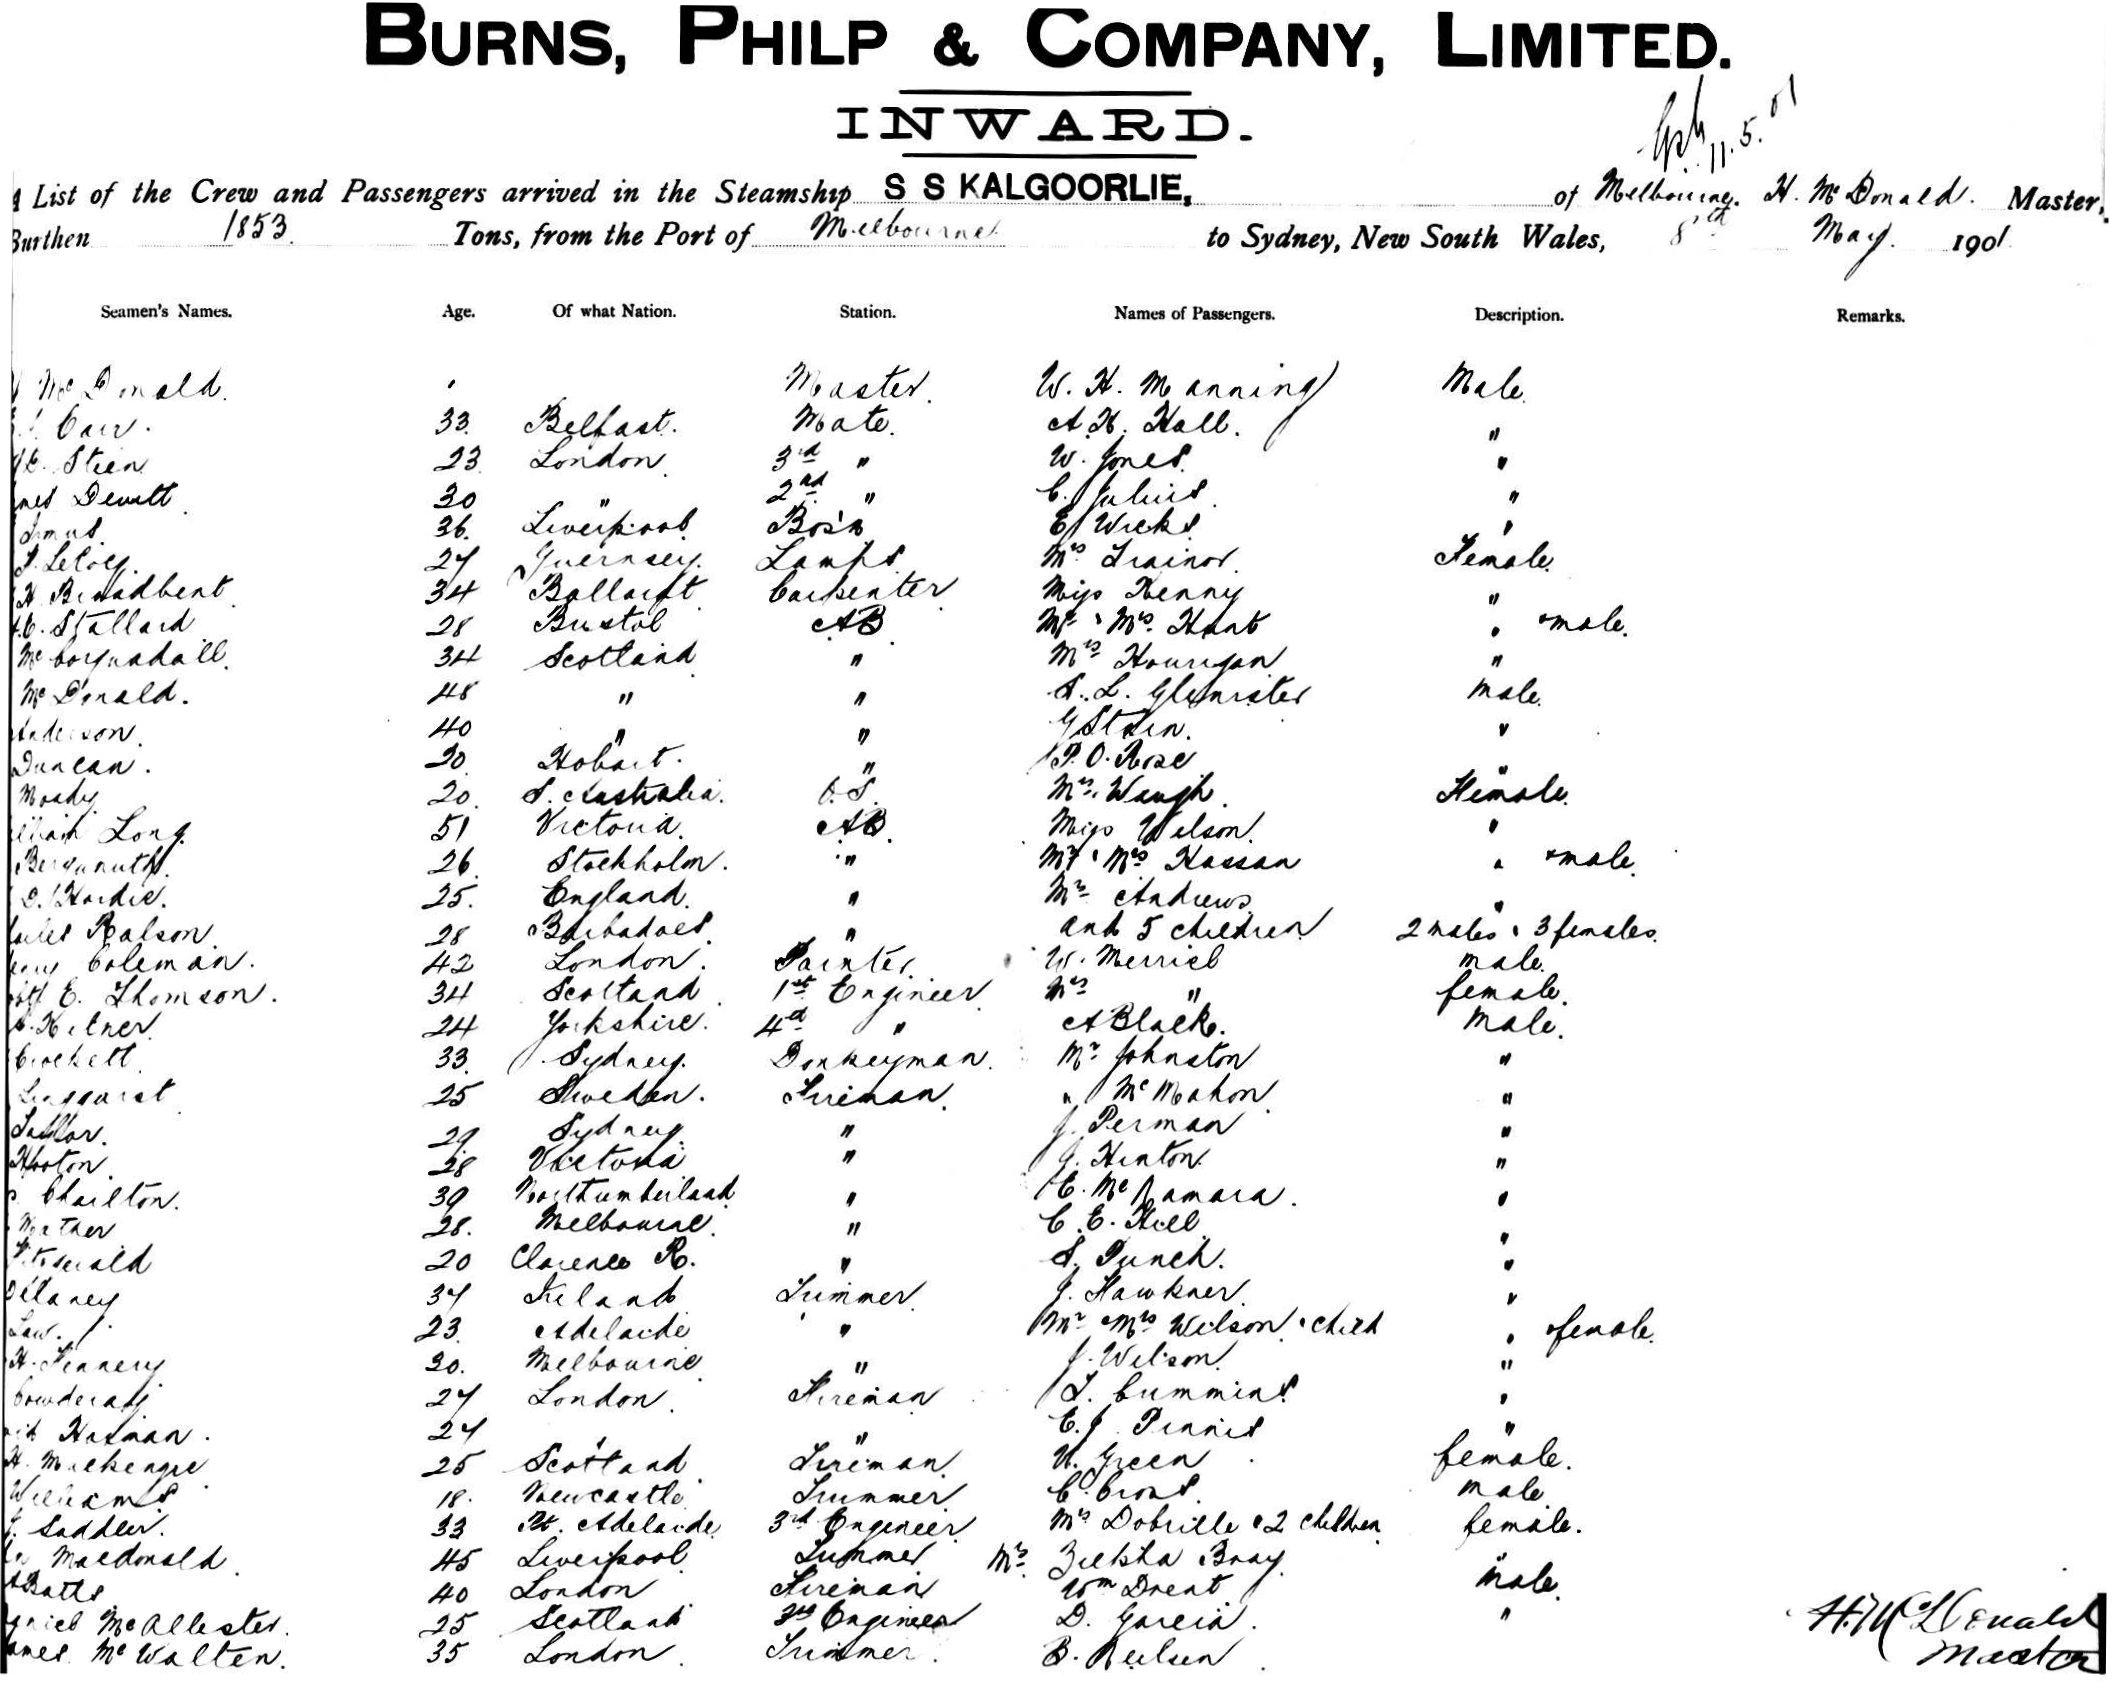 BURNS, PHILP & COMPANY, LIMITED.
INWARD.
11.5.01
List of the Crew and Passengers arrived in the Steamship S S KALGOORLIE, of Melbourne. H. McDonald. Master,
Burthen 1853. Tons, from the Port of Melbourne to Sydney, New South Wales, 8th May. 1901
Seamen's Names. Age. Of what Nation. Station. Names of Passengers. Description. Remarks.
McDonald. Master. W. H. Manning Male.
Carr. 33. Belfast. Mate. A. H. Hall. "
Steen 23 London 3rd " W. Jones. "
Dewitt 30 " 2nd " C. Julius. "
36. Liverpool Bo'sn E Wicks "
27 Guernsey. Lamps. Mrs Trainor. Female.
H Broadbent 34 Ballarat Carpenter Miss Kenny "
Stallard 28 Bristol AB Mr & Mrs Hunt " & male.
McCorquadall. 34 Scotland " Mrs Hourigan "
McDonald. 48 " " S. L. Glemister male.
Anderson. 40 " " G Stein. "
Duncan. 20 Hobart. " P. O. Rose "
Moody 20. S. Australia. O.S. Mrs. Waugh. Female.
Long. 51 Victoria. AB. Miss Wilson. "
26. Stockholm. " Mr & Mrs Hassan " & male.
D. Hardie. 25. England. " Mrs Andrews "
Ralson. 28 Barbadoes. " and 5 children 2 males & 3 females.
Coleman. 42 London. Painter. W. Merrick male.
E. Thomson. 34 Scotland 1st Engineer Mrs " female.
24 Yorkshire. 4th " A Black. Male.
Crockett 33. Sydney. Donkeyman. Mr Johnston "
Lingquist 25 Sweden. Fireman. " McMahon "
Taylor. 29 Sydney. " J. Perman "
Hooton 28 Victoria " J. Hinton. "
Charlton. 39 Northumberland " E. McNamara. "
Mather 28. Melbourne. " C. E. Hill "
Fitzgerald 20 Clarence R. " S. Punch. "
Delaney 37 Ireland Trimmer. J. Hawkner. "
Law. 23. Adelaide " Mr & Mrs Wilson & child " & female.
H. Fennery 20. Melbourne " J. Wilson. "
27 London. Fireman T. Cummins "
27 " " E. J. Pinnis "
H. Mackenzie 25 Scotland. Fireman. Green female.
Williams 18. Newcastle. Trimmer. C. male
Saddler. 33 Pt. Adelaide 3rd Engineer Mrs Dobrille & 2 children female.
Macdonald. 45 Liverpool Trimmer Mrs. Bray "
Batts 40 London Fireman Wm Drent male.
McAllester. 25 Scotland 2nd Engineer D. Garcia. "
James McWalten. 35 London. Trimmer. B. Neilsen.
H. McDonald
Master